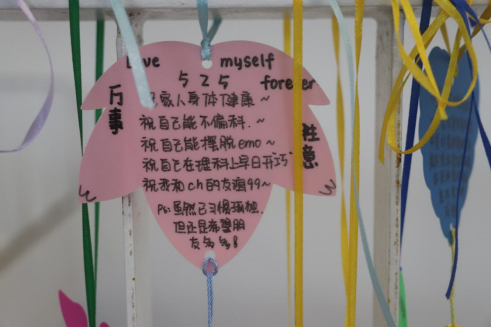 Love myself
525 forever
万事
胜意
祝家人身体健康~
祝自己能不偏科.~
祝自己能摆脱emo~
祝自己在理科上早日开巧
祝我和ch的友谊99~
Ps:虽然已习惯孤独.
但还是希望朋
友多多!